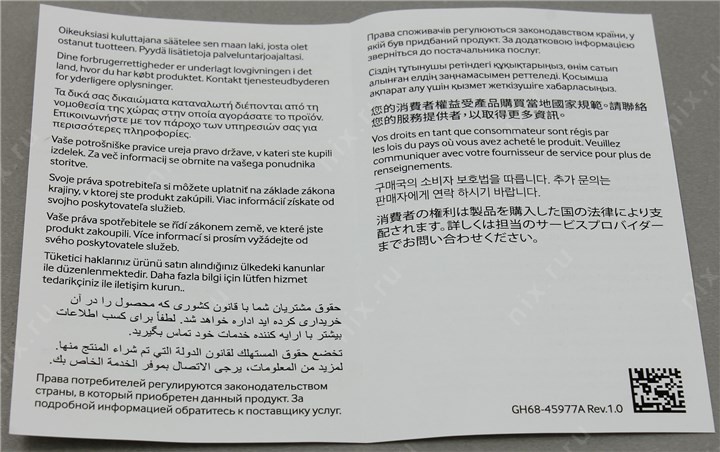 Oikeuksiasi kuluttajana säätelee sen maan laki, josta olet
ostanut tuotteen. Pyydä lisätietoja palveluntarjoajaltasi.
Dine forbrugerrettigheder er underlagt lovgivningen i det
land, hvor du har købt produktet. Kontakt tjenesteudbyderen
for yderligere oplysninger.
Τα δικά σας δικαιώματα καταναλωτή διέπονται από τη
νομοθεσία της χώρας στην οποία αγοράσατε το προϊόν.
Επικοινωνήστε με τον πάροχο των υπηρεσιών σας για
περισσότερες πληροφορίες.
Vaše potrošniške pravice ureja pravo države, v kateri ste kupili
izdelek. Za več informacij se obrnite na vašega ponudnika
storitve.
Svoje práva spotrebiteľa si môžete uplatniť na základe zákona
krajiny, v ktorej ste produkt zakúpili. Viac informácií získate od
svojho poskytovateľa služieb.
Vaše práva spotřebitele se řídí zákonem země, ve které jste
produkt zakoupili. Více informací si prosím vyžádejte od
svého poskytovatele služeb.
Tüketici haklarınız ürünü satın alındığınız ülkedeki kanunlar
ile düzenlenmektedir. Daha fazla bilgi için lütfen hizmet
tedarikçiniz ile iletişim kurun..
حقوق مشتریان شما با قانون کشوری که محصول را در آن
خریداری کرده اید اداره خواهد شد. لطفاً برای کسب اطلاعات
بیشتر با ارایه کننده خدمات خود تماس بگیرید.
تخضع حقوق المستهلك لقانون الدولة التي تم شراء المنتج منها.
لمزيد من المعلومات، يرجى الاتصال بموفر الخدمة الخاص بك.
Права потребителей регулируются законодательством
страны, в который приобретен данный продукт. За
подробной информацией обратитесь к поставщику услуг.
Права споживачів регулюються законодавством країни, у
якій був придбаний продукт. За додатковою інформацією
зверніться до постачальника послуг.
Сіздің тұтынушы ретіндегі құқықтарыңыз, өнім сатып
алынған елдің заңнамасымен реттеледі. Қосымша
ақпарат алу үшін қызмет жеткізушіге хабарласыңыз.
您的消費者權益受產品購買當地國家規範。請聯絡
您的服務提供者，以取得更多資訊。
Vos droits en tant que consommateur sont régis par
les lois du pays où vous avez acheté le produit. Veuillez
communiquer avec votre fournisseur de service pour plus de
renseignements.
구매국의 소비자 보호법을 따릅니다. 추가 문의는
판매자에게 연락 하시기 바랍니다.
消費者の権利は製品を購入した国の法律により支
配されます。詳しくは担当のサービスプロバイダー
までお問い合わせください。
GH68-45977A Rev.1.0
nix.ru